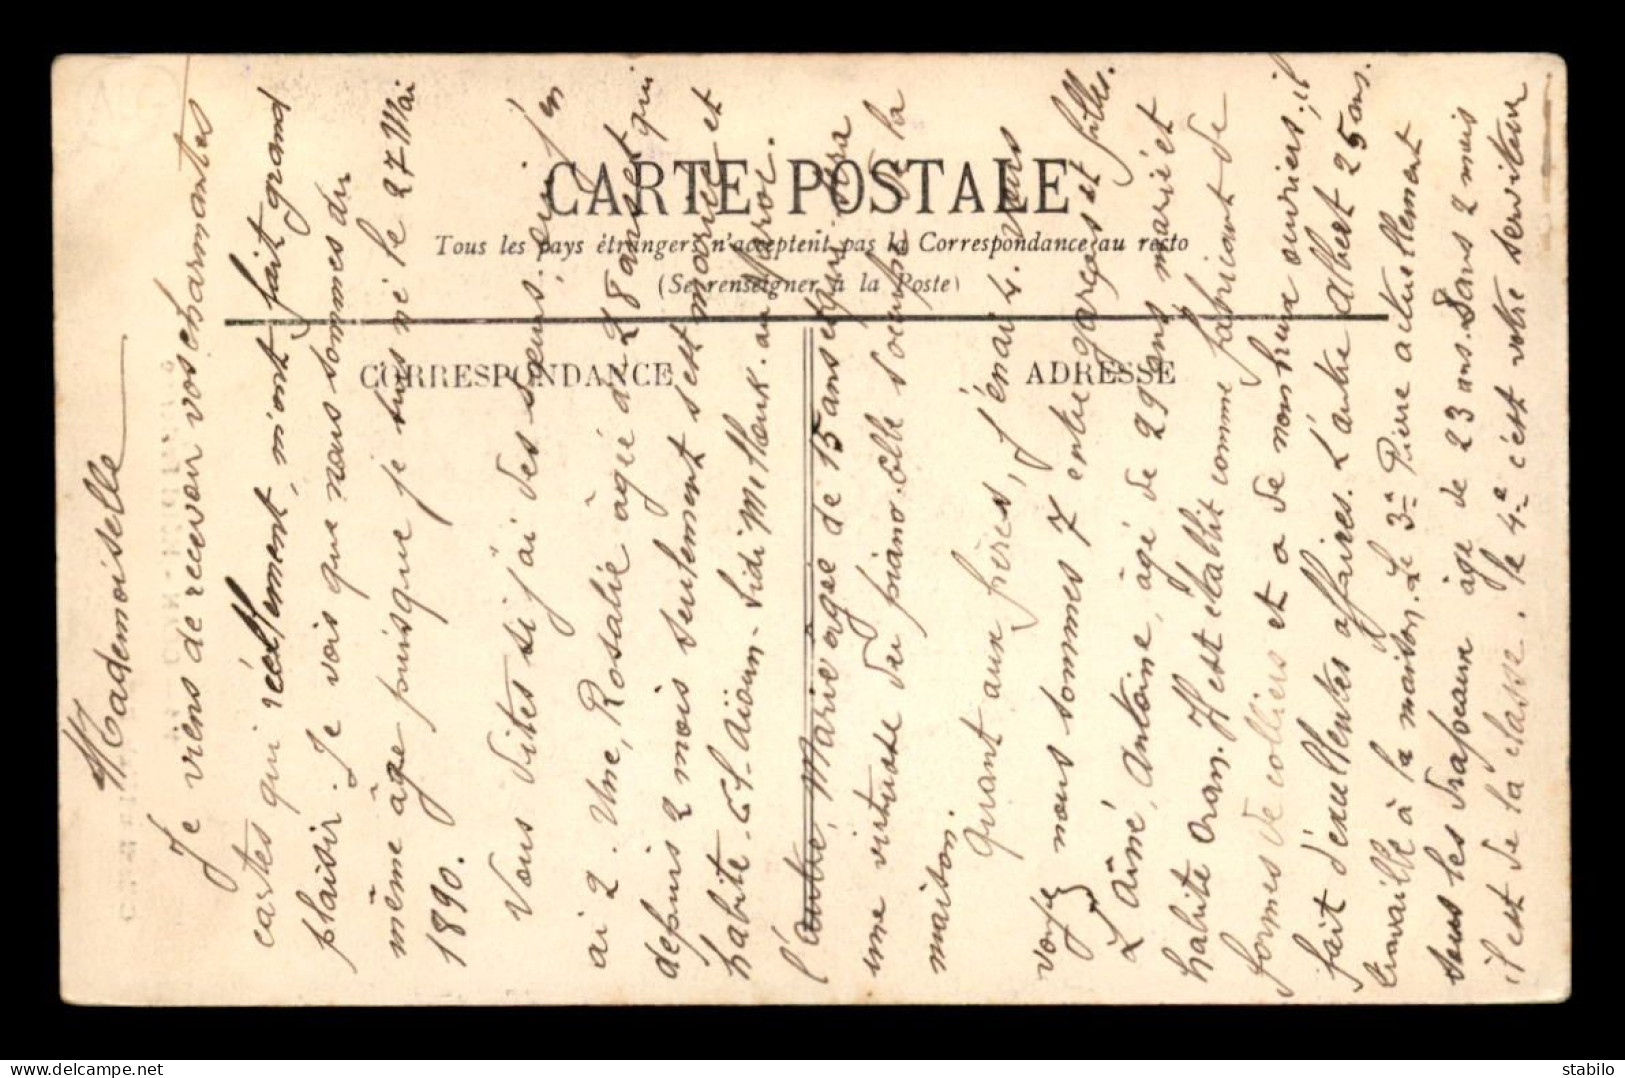 CARTE POSTALE
Tous les pays étrangers n'acceptent pas la Correspondance au recto
(Se renseigner à la Poste)
CORRESPONDANCE
ADRESSE
Mademoiselle
Je viens de recevoir vos charmantes
cartes qui réellement m'ont fait grand
plaisir. Je vois que nous sommes du
même âge puisque je suis né le 27 Mai
1890.
Vous dites si j'ai des sœurs, oui j'en
ai 2. Une, Rosalie âgée de 28 ans et qui
depuis 2 mois seulement s'est mariée et
habite El-Aïoun-Sidi Mellouk au Maroc.
l'autre, Marie âgée de 15 ans et qui sera
une virtuose du piano. Elle s'occupe de la
maison.
Quant aux frères, j'en ai 4. Vous
voyez nous sommes 7 entre garçons et filles.
L'aîné, Antoine, âgé de 29 ans marié et
habite Oran. Il est établit comme fabricant de
formes de colliers et a de nombreux ouvriers; il
fait d'excellentes affaires. L'autre Albert 25 ans.
travaille à la maison. Le 3e Pierre actuellement
sous les drapeaux âgé de 23 ans. Dans 2 mois
il est de la classe. Le 4e c'est votre serviteur
ALG
delcampe.net
stabilo